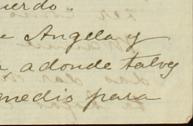 uerdo
Angela y
adonde talvez
medio para